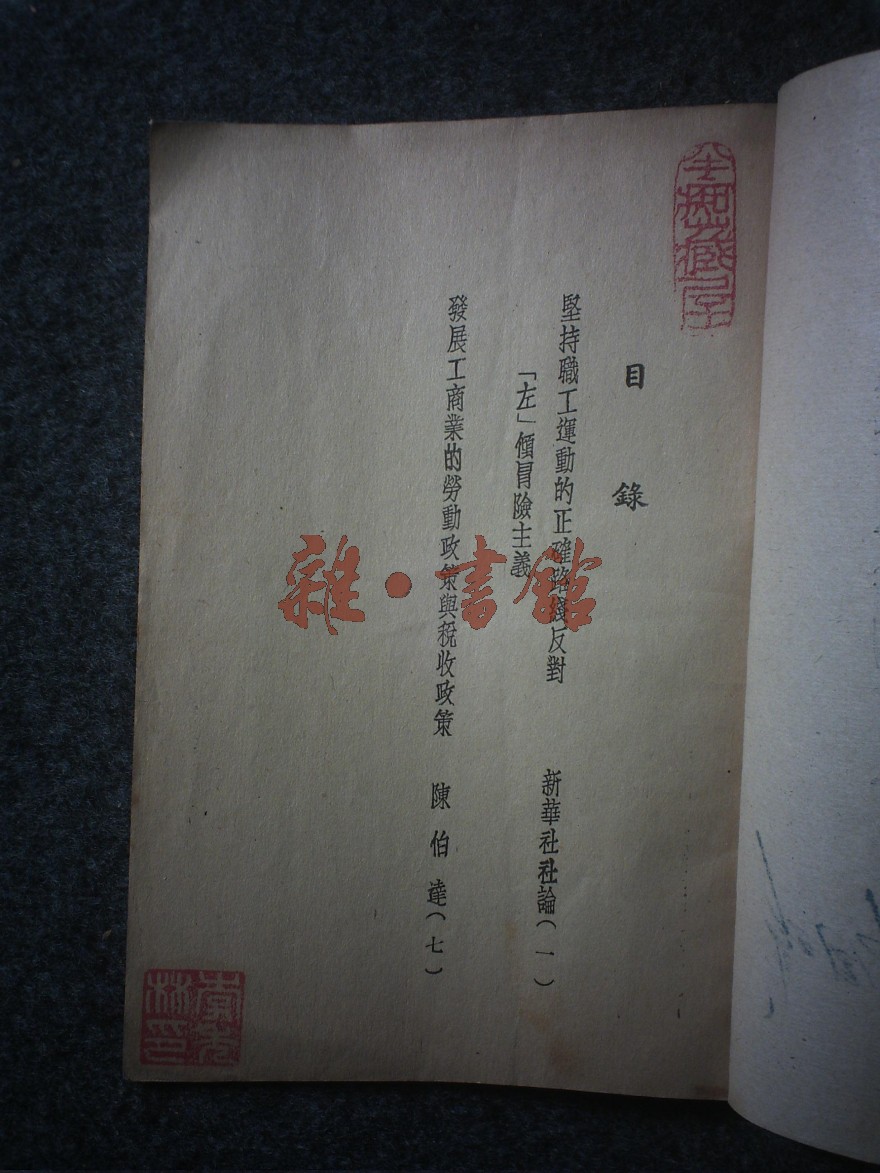 目錄
堅持職工運動的正確路綫反對
「左」傾冒險主義
新華社社論(一)
發展工商業的勞動政策與稅收政策 陳伯達(七)
雜·書館